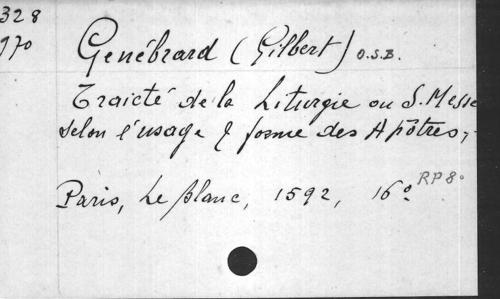 328
970
Genébrard (Gilbert) O.S.B.
Traicté de la Liturgie ou S. Messe
selon l'usage & forme des Apôtres,
Paris, Le Blanc, 1592, 16°
RP 8°